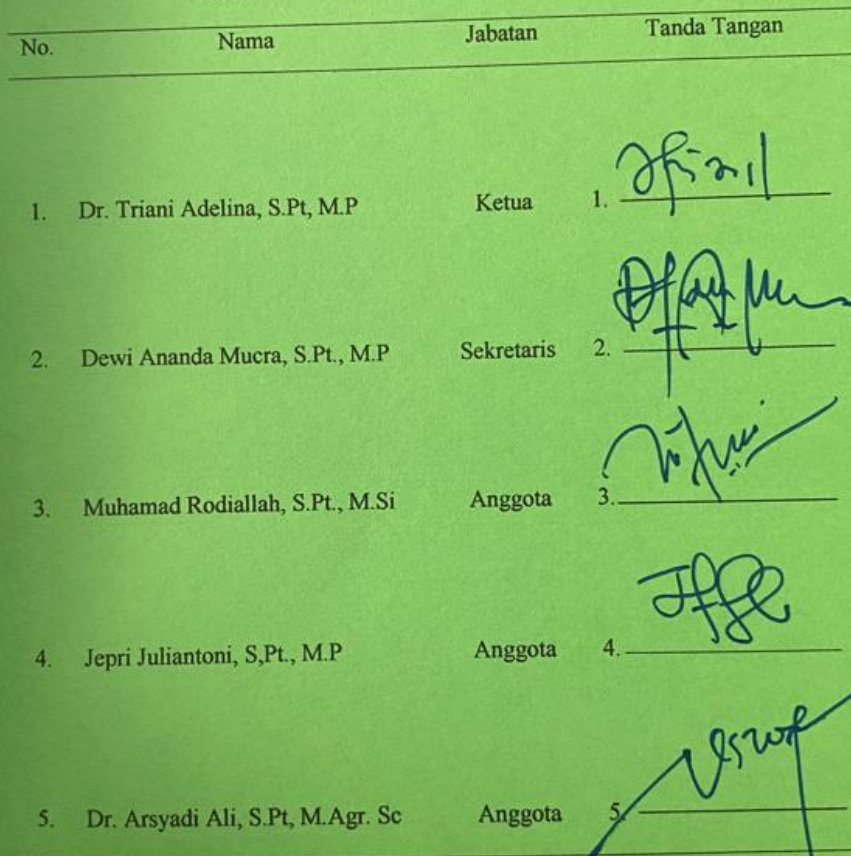 No. Nama Jabatan Tanda Tangan
1. Dr. Triani Adelina, S.Pt, M.P Ketua 1.
2. Dewi Ananda Mucra, S.Pt., M.P Sekretaris 2.
3. Muhamad Rodiallah, S.Pt., M.Si Anggota 3.
4. Jepri Juliantoni, S,Pt., M.P Anggota 4.
5. Dr. Arsyadi Ali, S.Pt, M.Agr. Sc Anggota 5.